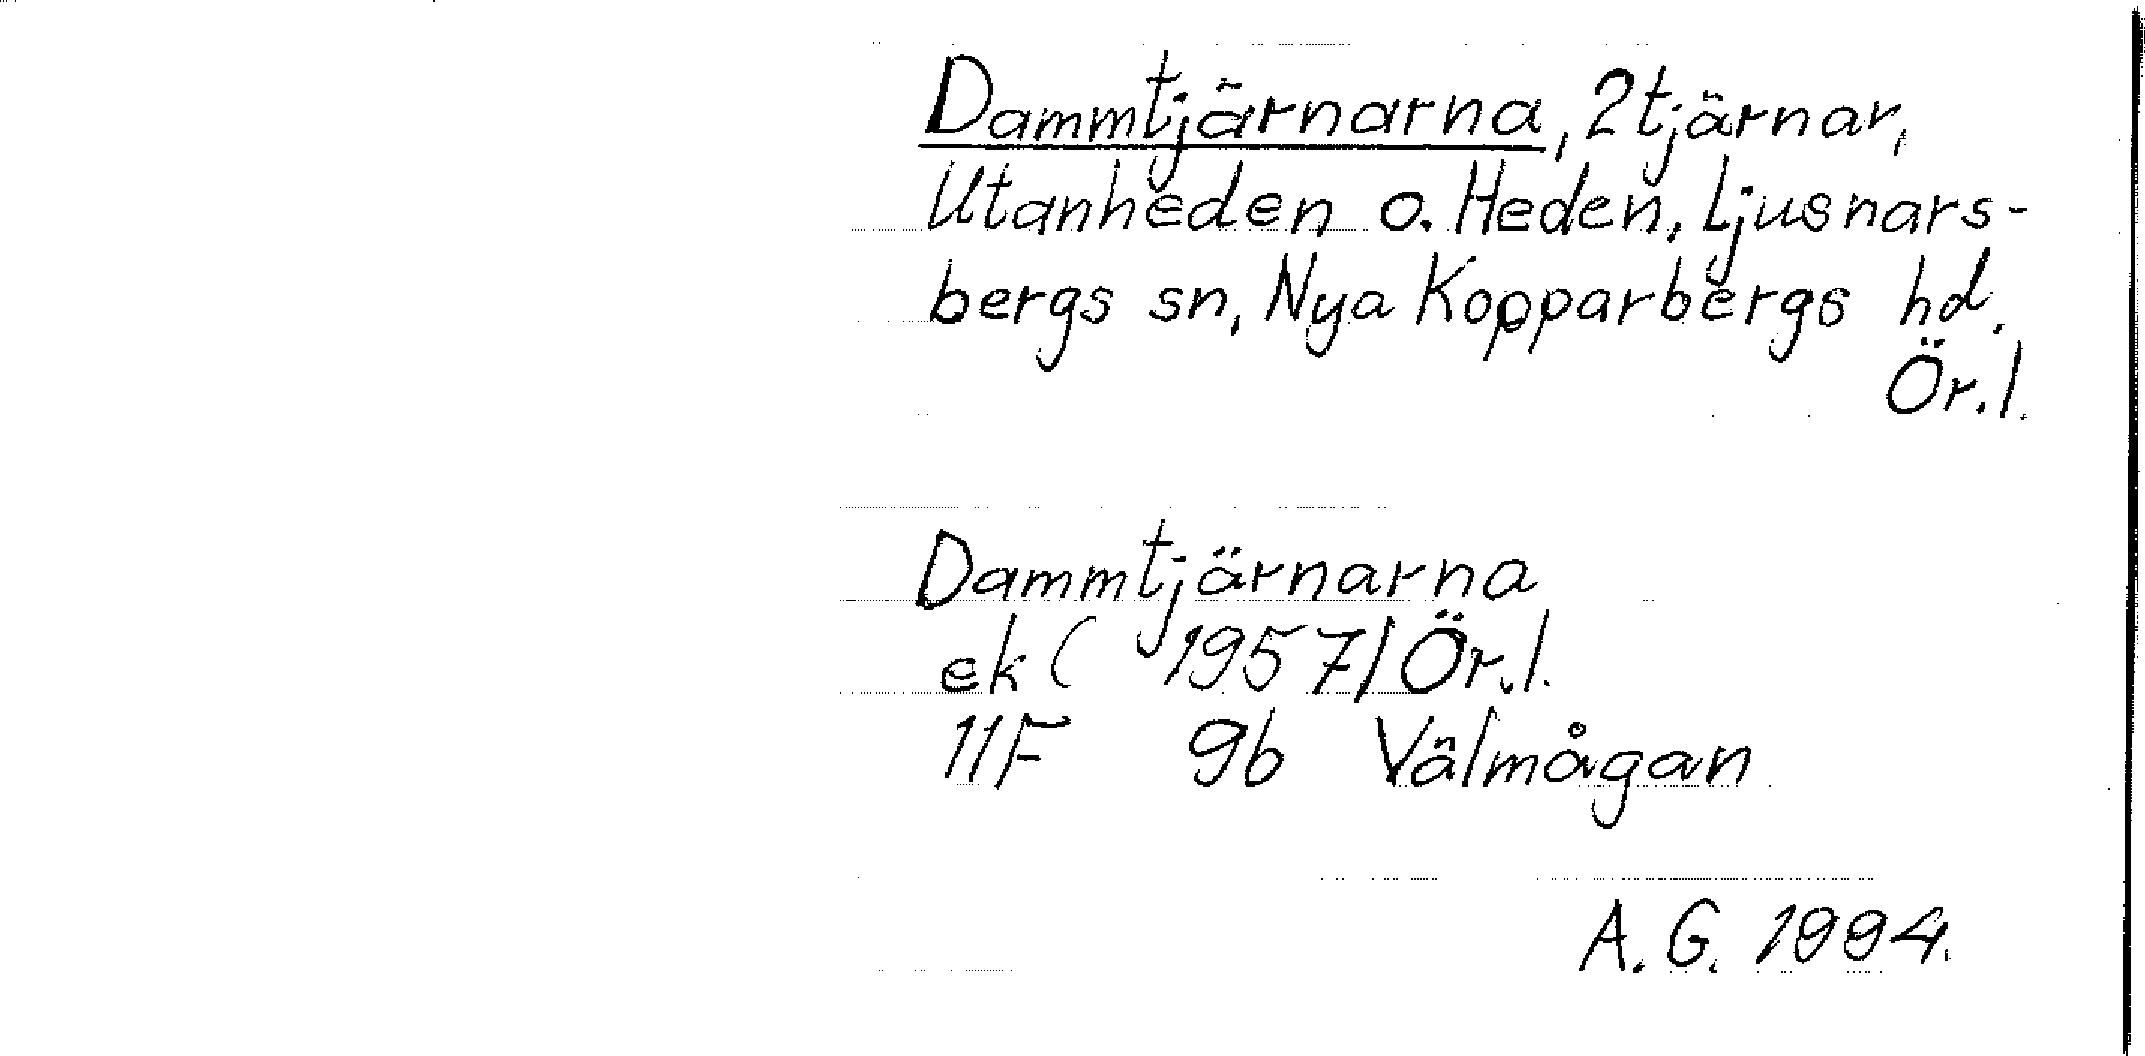 Dammtjärnarna, 2 tjärnar,
Utanheden o. Heden, Ljusnars-
bergs sn, Nya Kopparbergs hd.
Ör.l.
Dammtjärnarna
ek ( 1957) Ör.l.
11F 9b Välmågan
A. G. 1994.